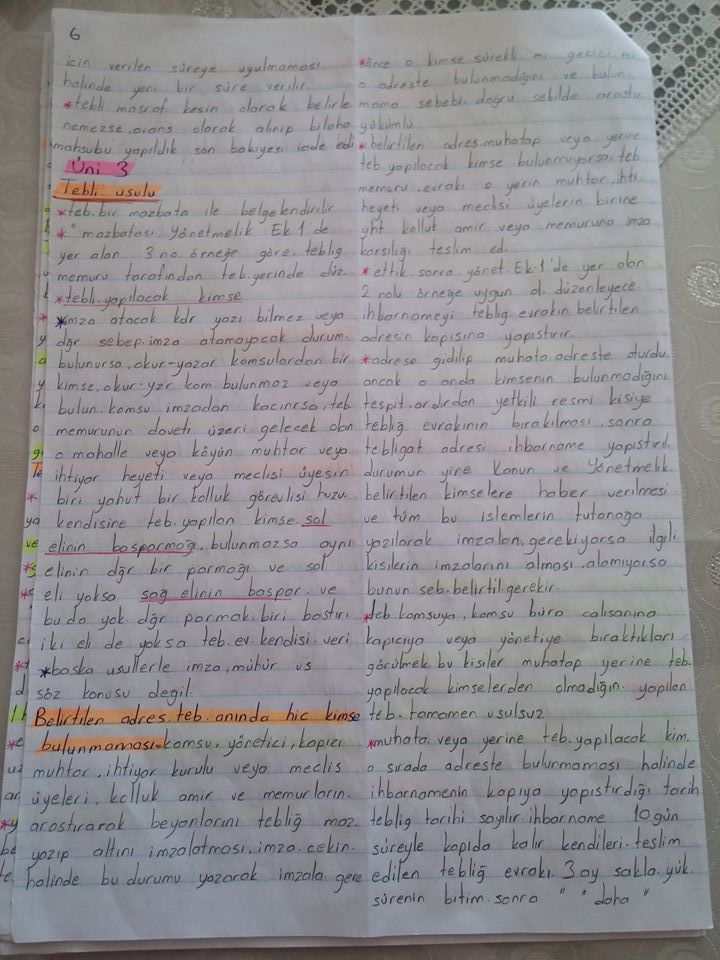 6
için verilen süreye uyulmaması
halinde yeni bir süre verilir.
*tebli masraf kesin olarak belirle
nemezse, avans olarak alınıp bilaha
mahsubu yapıldık son bakiyesi iade edi
Üni 3
Tebli usulu
*teb. bir mazbata ile belgelendirilir
*" mazbatası, yönetmelik Ek 1'de
yer alan 3 no. örneğe göre, teblig
memuru tarafından teb. yerinde düz.
*tebli. yapılacak kimse
*imza atacak kdr yazı bilmez veya
dğr sebep. imza atamayacak durum.
bulunursa, okur-yazar komsulardan bir
kimse, okur-yzr kom bulunmaz veya
bulun. komsu imzadan kacınırsa, teb
memurunun daveti üzeri gelecek olan
o mahalle veya köyün muhtar veya
ihtiyar heyeti veya meclisi üyesin
biri yahut bir kolluk görevlisi huzu
kendisine teb. yapılan kimse sol
elinin basparmağı, bulunmazsa aynı
elinin dğr bir parmağı ve sol
eli yoksa sağ elinin baspar. ve
bu da yok dğr parmak. biri bastırı
iki eli de yoksa teb. ev kendisi. veri
*baska usullerle imza, mühür vs
söz konusu degil.
Belirtilen adres. teb. anında hic kimse
bulunmaması. komsu, yönetici, kapıcı
muhtar, ihtiyar kurulu veya meclis
üyeleri, kolluk amir ve memurların.
arastırarak beyanlarını tebliğ maz.
yazıp altını imzalatması, imza. cekin.
halinde bu durumu yazarak imzala. gere
*önce o kimse sürekli mi gecici mi
o adreste bulunmadığını ve bulun
mama sebebi. doğru sekilde arastır
yükümlü
*belirtilen adres. muhatap veya yerine
teb. yapılacak kimse bulunmuyorsa, teb
memuru, evrakı o yerin muhtar, ihti
heyeti veya meclisi üyelerin birine
yht kolluk amir veya memuruna imza
karsılığı teslim ed.
*ettik sonra yönet. Ek 1'de yer alan
2 nolu örneğe uygun ol. düzenleyece
ihbarnameyi teblig evrakın belirtilen
adresin kapısına yapıstırır.
*adrese gidilip muhata. adreste oturdu.
ancak o anda kimsenin bulunmadığını
tespit. ardırdan yetkili resmi kisiye
tebliğ evrakının bırakılması, sonra
tebligat adresi ihbarname yapıstırıl.
durumun yine Kanun ve Yönetmelik
belirtilen kimselere haber verilmesi
ve tüm bu islemlerin tutanaga
yazılarak imzalan, gerekiyorsa ilgili
kisilerin imzalarını alması, alamıyorsa
bunun seb. belirtil. gerekir
*teb. komsuya, komsu büro calısanına
kapıcıya veya yönetiye bıraktıkları
görülmek bu kisiler muhatap yerine teb.
yapılacak kimselerden olmadığın. yapılan
teb. tamamen usulsuz
*muhata. veya yerine teb. yapılacak kim.
o sırada adreste bulunmaması halinde
ihbarnamenin kapıya yapıstırdığı tarih
teblig tarihi sayılır. ihbarname 10 gün
süreyle kapıda kalır kendileri. teslim
edilen tebliğ evrakı. 3 ay sakla. yük.
sürenin bitim. sonra " " daha "